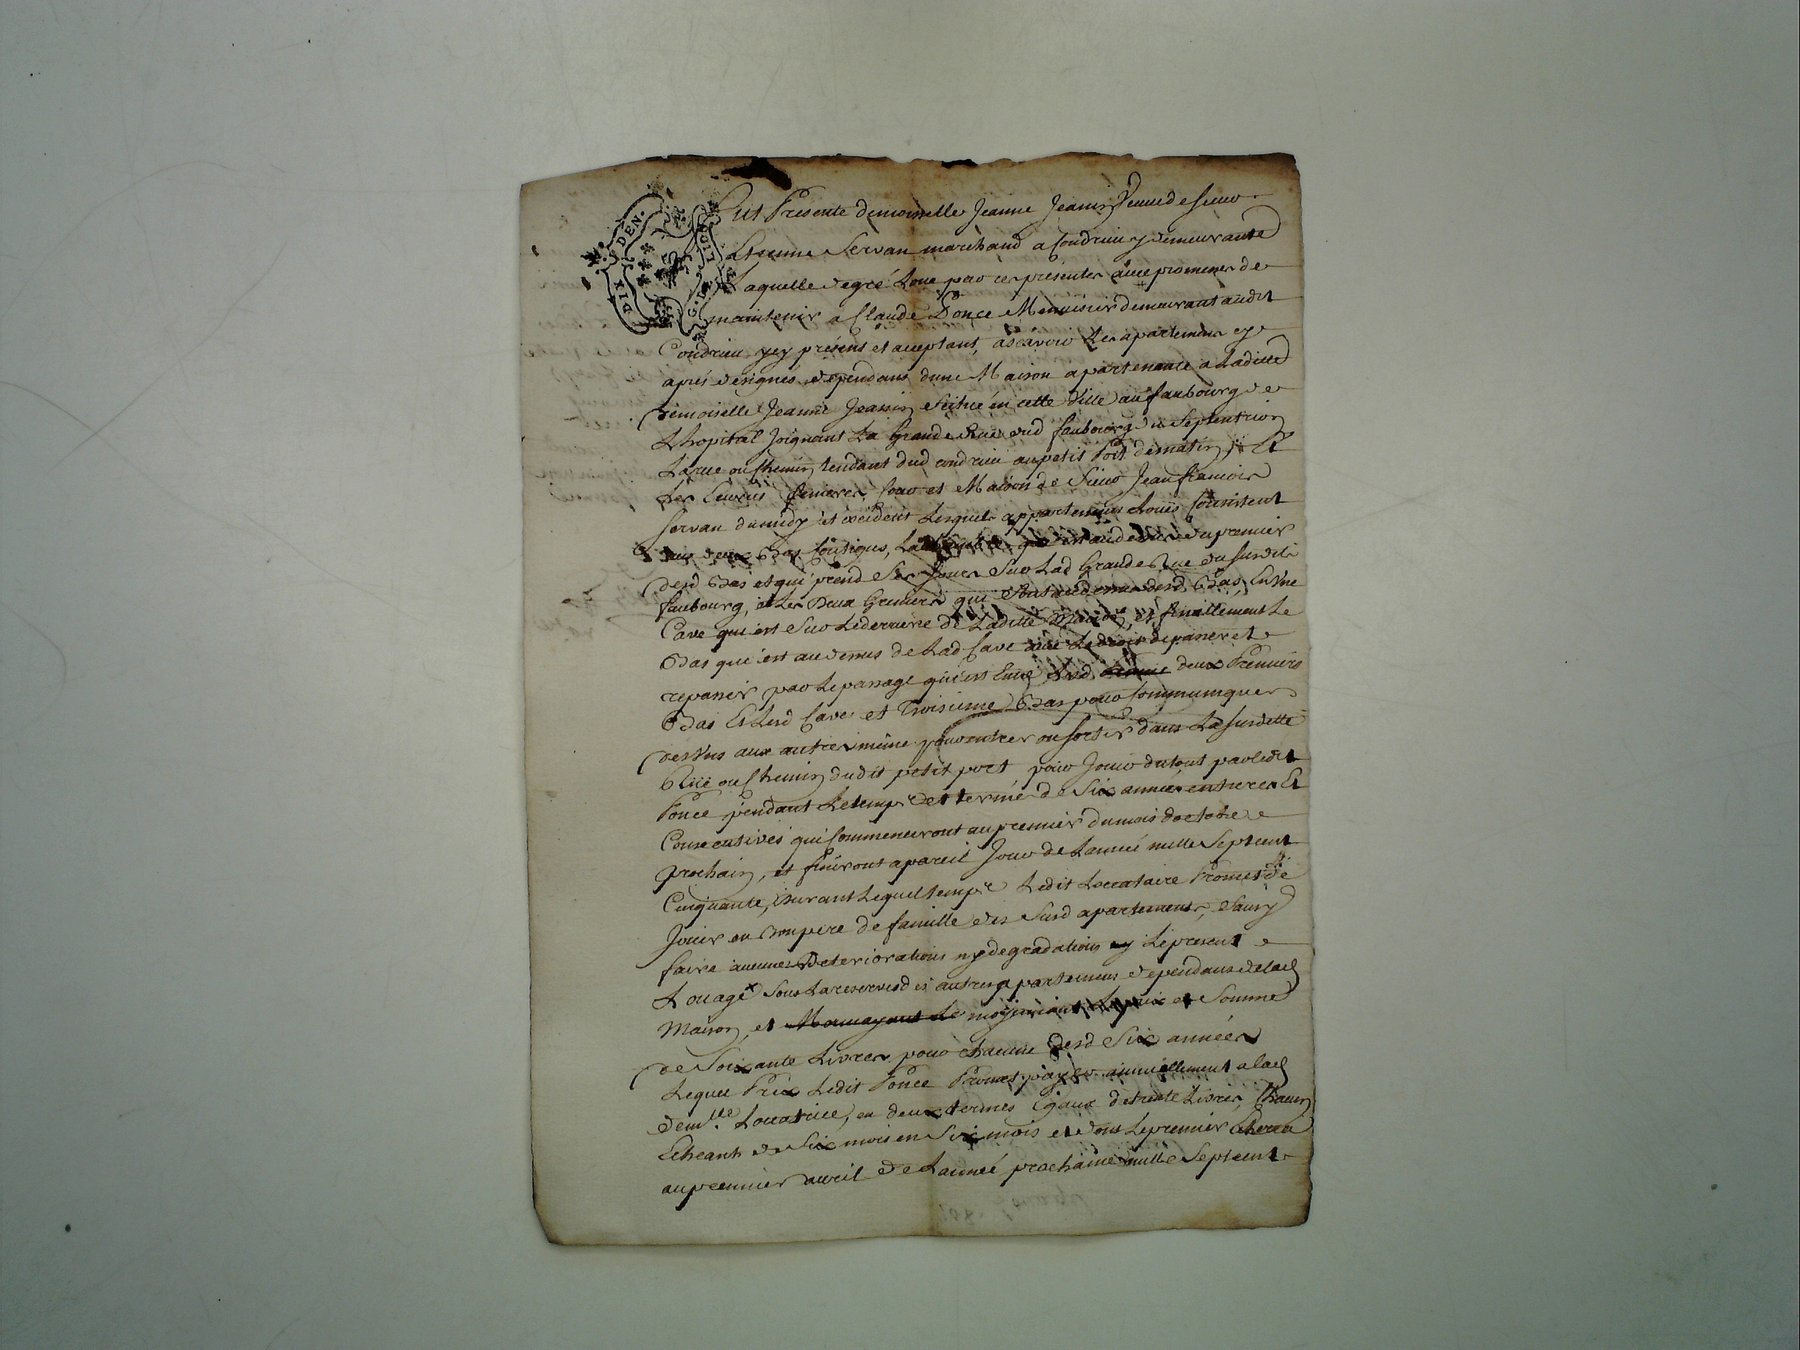 DIX DEN.
G. LYON
Fut Presente demoiselle Jeanne Jeanin Veuve de sieur
Etienne Servan marchand a Condrieu y demeurante
Laquelle de gré Loue par ces présentes avec promesses de
maintenir a Claude Ponce Menuisier demeurant audit
Condrieu ycy présent et aceptant, ascavoir Les apartemens cy
aprés designés dependans dune Maison apartenante a Laditte
demoiselle Jeanne Jeanin scitué en cette Ville au faubourg de
Lhopital Joignant La Grande Rue dud faubourg du Septentrion
La rue ou Chemin tendant dud condrieu au petit Port de matin, Et
les Ecuries fenieres, Cour et Maison de Sieur Jean francois
Servan du midy et occident Lesquels appartemens Loués Consistent
aux deux Bas Contigus, La qui est au dessus du premier
desd Bas et qui prend Ses Jours Sur Lad Grande Rue du susdit
faubourg, et Les Deux Greniers qui Sont au dessus desd Bas, En Une
Cave qui est Sur Le derriere de Laditte Maison, et finallement Le
Bas qui est au dessus de Lad Cave avec Le droit de passer et
repasser par Le passage qui est Entre Lesd deux Premiers
Bas Et Lesd Cave et Troisieme Bas pour Communiquer
des Uns aux autres même pour entrer ou sortir dans La susditte
Rüe ou Chemin dudit petit port pour Jouir du tout par Ledit
Ponce pendant Le temps et terme de Six années entieres Et
Consecutives qui Commenceront au premier du mois doctobre
prochain, et finiront a pareil Jour de Lannée mille Septcent
Cinquante, durant Lequel temps Ledit Locataire Promet de
Jouir en bon pere de famille des Susd apartemens, Sans y
faire aucunes Deteriorations ny degradations Le present
Louage Sous La reserve des autres apartemens dependans de lad
Maison, et moyennant Le prix et Somme
de Soixante Livres pour chacune desd Six années
Lequel Prix Ledit Ponce Promet payer annuellement a lad
demlle. Locatrice, en deux termes Egaux de trente Livres Chacun
Echeant de Six mois en Six mois et dont Le premier Echerra
au premier avril de Lannée prochaine mille Septcent